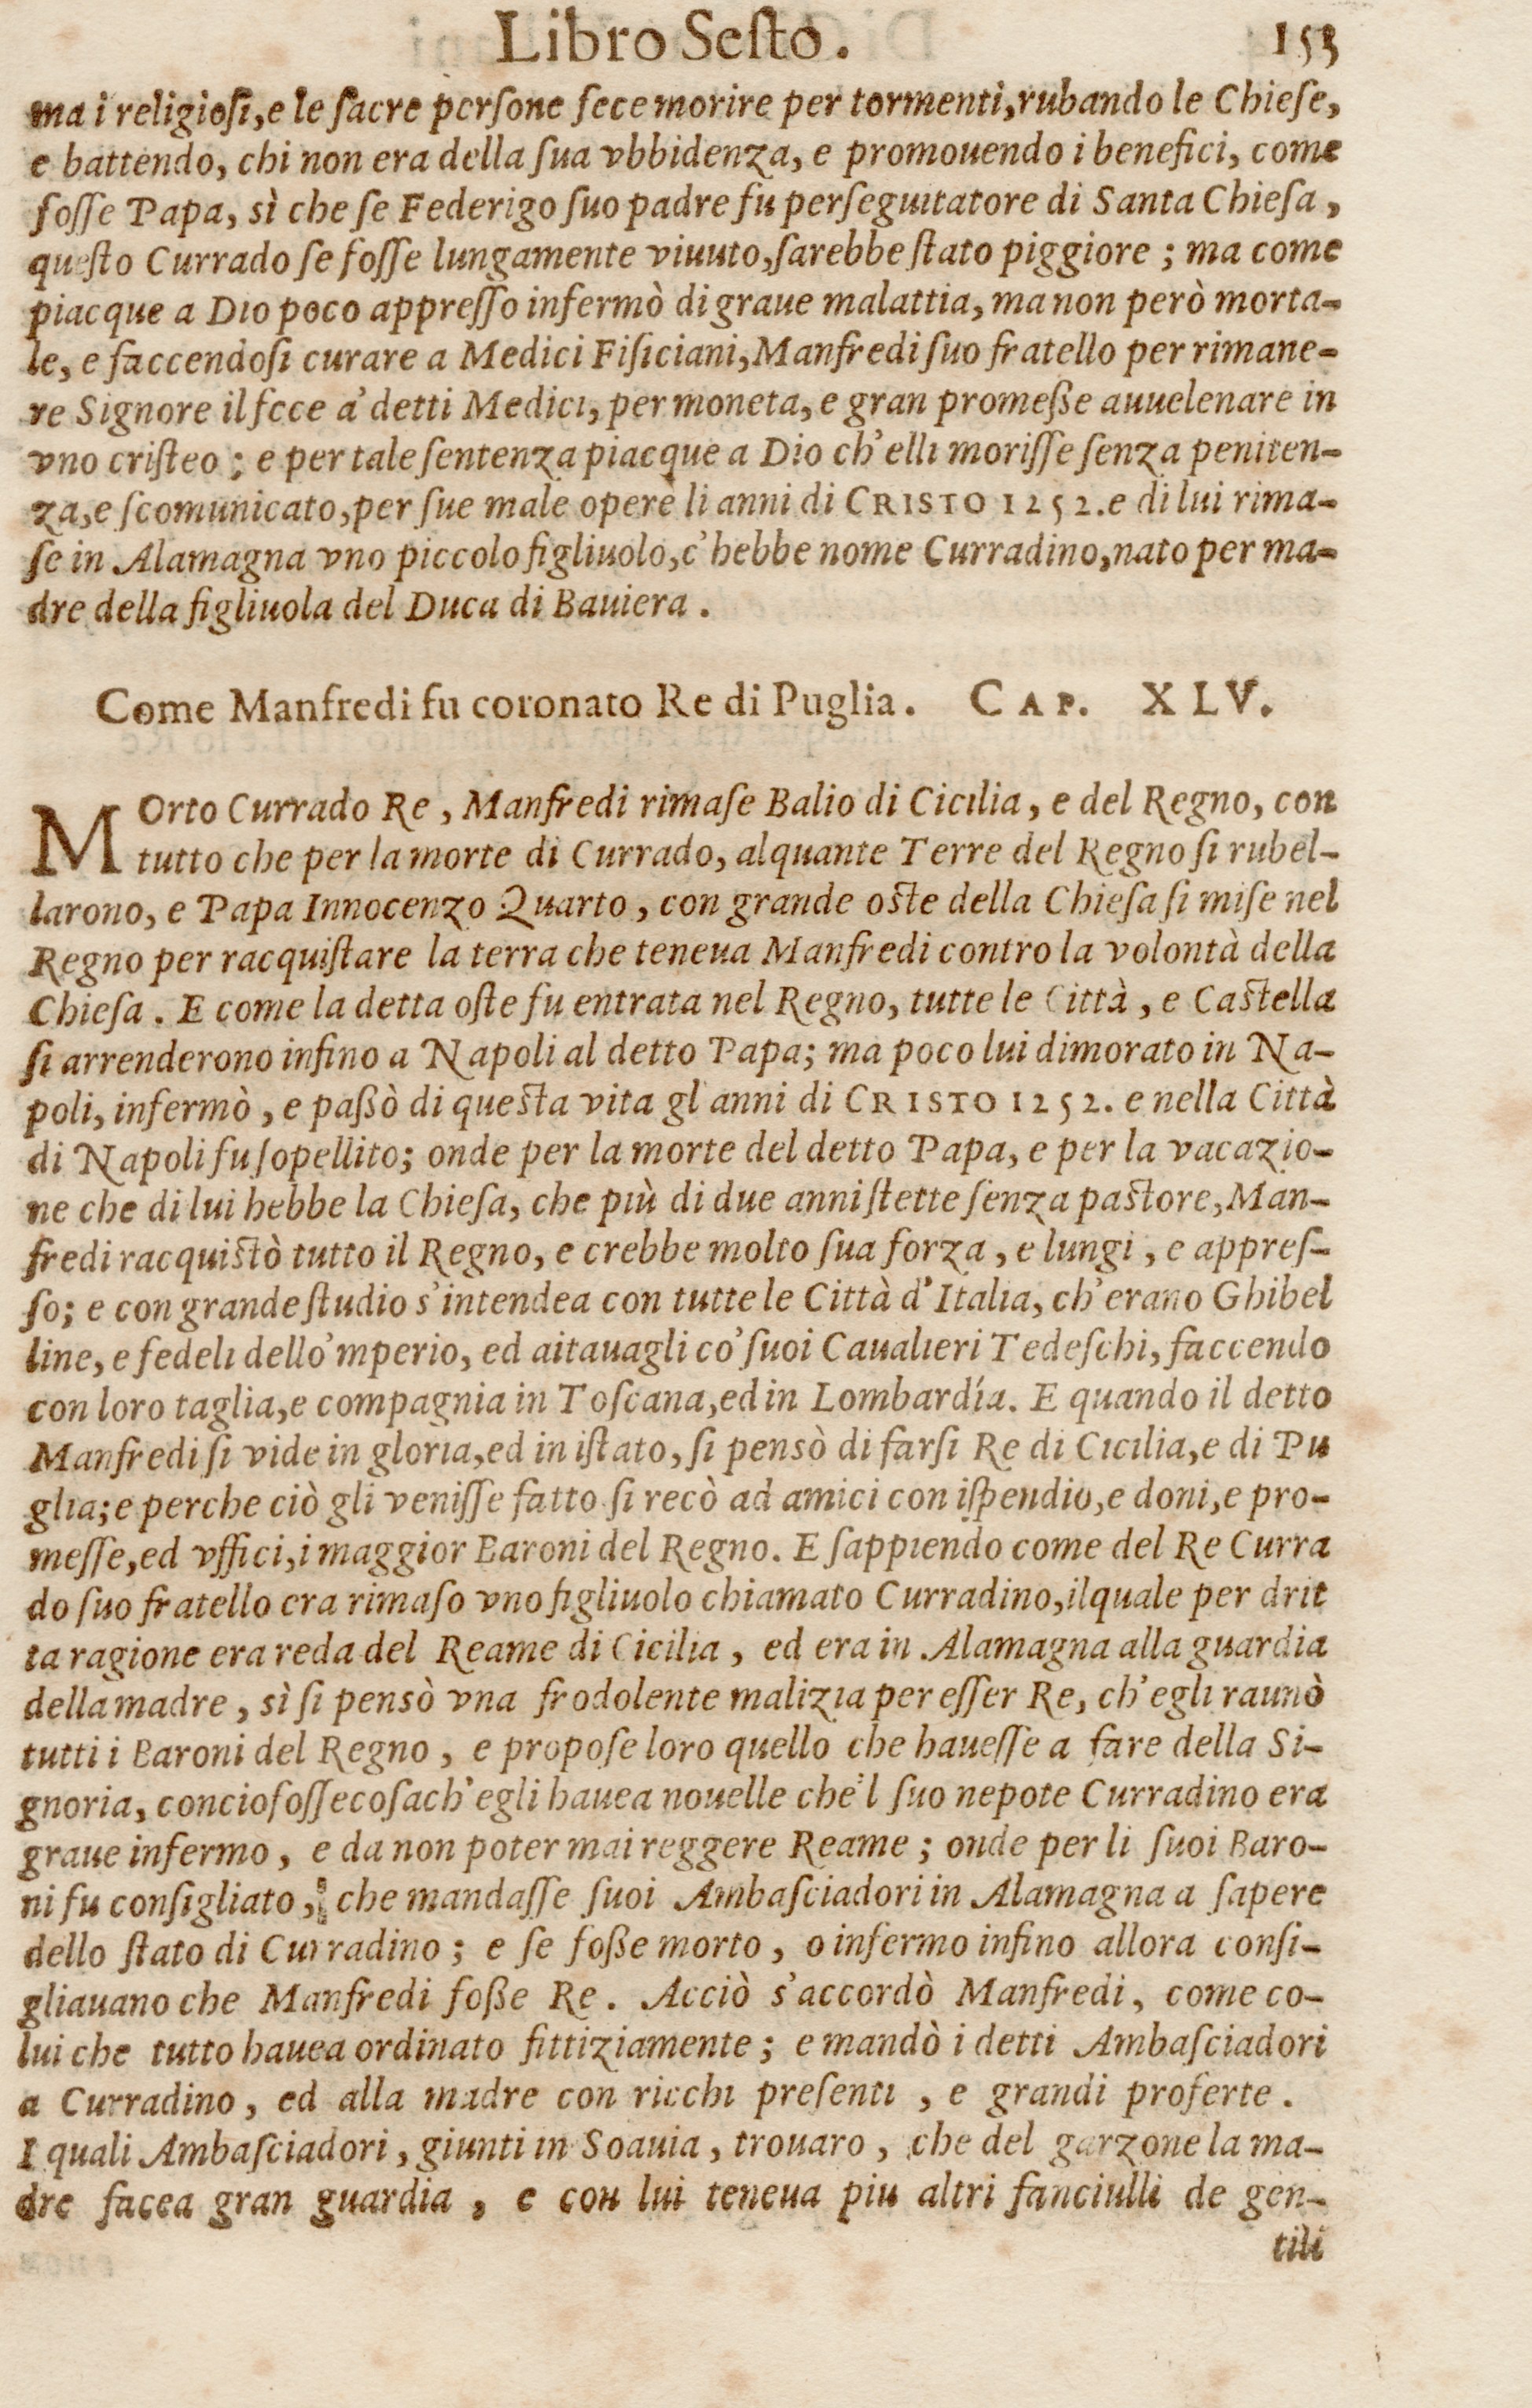 Libro Seſto. 153
ma i religioſi, e le ſacre perſone fece morire per tormenti, rubando le Chieſe,
e battendo, chi non era della ſua vbbidenza, e promouendo i benefici, come
foſſe Papa, sì che ſe Federigo ſuo padre fu perſeguitatore di Santa Chieſa,
queſto Currado ſe foſſe lungamente viuuto, ſarebbe ſtato piggiore; ma come
piacque a Dio poco appreſſo infermò di graue malattia, ma non però morta-
le, e faccendoſi curare a Medici Fiſiciani, Manfredi ſuo fratello per rimane-
re Signore il fece a' detti Medici, per moneta, e gran promeſſe auuelenare in
vno criſteo; e per tale ſentenza piacque a Dio ch'elli moriſſe ſenza peniten-
za, e ſcomunicato, per ſue male opere li anni di CRISTO 1252. e di lui rima-
ſe in Alamagna vno piccolo figliuolo, c'hebbe nome Curradino, nato per ma-
dre della figliuola del Duca di Bauiera.
Come Manfredi fu coronato Re di Puglia. CAP. XLV.
MOrto Currado Re, Manfredi rimaſe Balio di Cicilia, e del Regno, con
tutto che per la morte di Currado, alquante Terre del Regno ſi rubel-
larono, e Papa Innocenzo Quarto, con grande oſte della Chieſa ſi miſe nel
Regno per racquiſtare la terra che teneua Manfredi contro la volontà della
Chieſa. E come la detta oſte fu entrata nel Regno, tutte le Città, e Caſtella
ſi arrenderono infino a Napoli al detto Papa; ma poco lui dimorato in Na-
poli, infermò, e paſſò di queſta vita gl anni di CRISTO 1252. e nella Città
di Napoli fu ſopellito; onde per la morte del detto Papa, e per la vacazio-
ne che di lui hebbe la Chieſa, che più di due anni ſtette ſenza paſtore, Man-
fredi racquiſtò tutto il Regno, e crebbe molto ſua forza, e lungi, e appreſ-
ſo; e con grande ſtudio s'intendea con tutte le Città d'Italia, ch'erano Ghibel
line, e fedeli dello'mperio, ed aitauagli co' ſuoi Caualieri Tedeſchi, faccendo
con loro taglia, e compagnia in Toſcana, ed in Lombardía. E quando il detto
Manfredi ſi vide in gloria, ed in iſtato, ſi pensò di farſi Re di Cicilia, e di Pu
glia; e perche ciò gli veniſſe fatto ſi recò ad amici con iſpendio, e doni, e pro-
meſſe, ed vffici, i maggior Baroni del Regno. E ſappiendo come del Re Curra
do ſuo fratello era rimaſo vno figliuolo chiamato Curradino, ilquale per drit
ta ragione era reda del Reame di Cicilia, ed era in Alamagna alla guardia
della madre, sì ſi pensò vna frodolente malizia per eſſer Re, ch'egli raunò
tutti i Baroni del Regno, e propoſe loro quello che haueſſe a fare della Si-
gnoria, conciofoſſecoſach'egli hauea nouelle che'l ſuo nepote Curradino era
graue infermo, e da non poter mai reggere Reame; onde per li ſuoi Baro-
ni fu conſigliato, che mandaſſe ſuoi Ambaſciadori in Alamagna a ſapere
dello ſtato di Curradino; e ſe foſſe morto, o infermo infino allora conſi-
gliauano che Manfredi foſſe Re. Acciò s'accordò Manfredi, come co-
lui che tutto hauea ordinato fittiziamente; e mandò i detti Ambaſciadori
a Curradino, ed alla madre con ricchi preſenti, e grandi proferte.
I quali Ambaſciadori, giunti in Soauia, trouaro, che del garzone la ma-
dre facea gran guardia, e con lui teneua piu altri fanciulli de gen-
tili